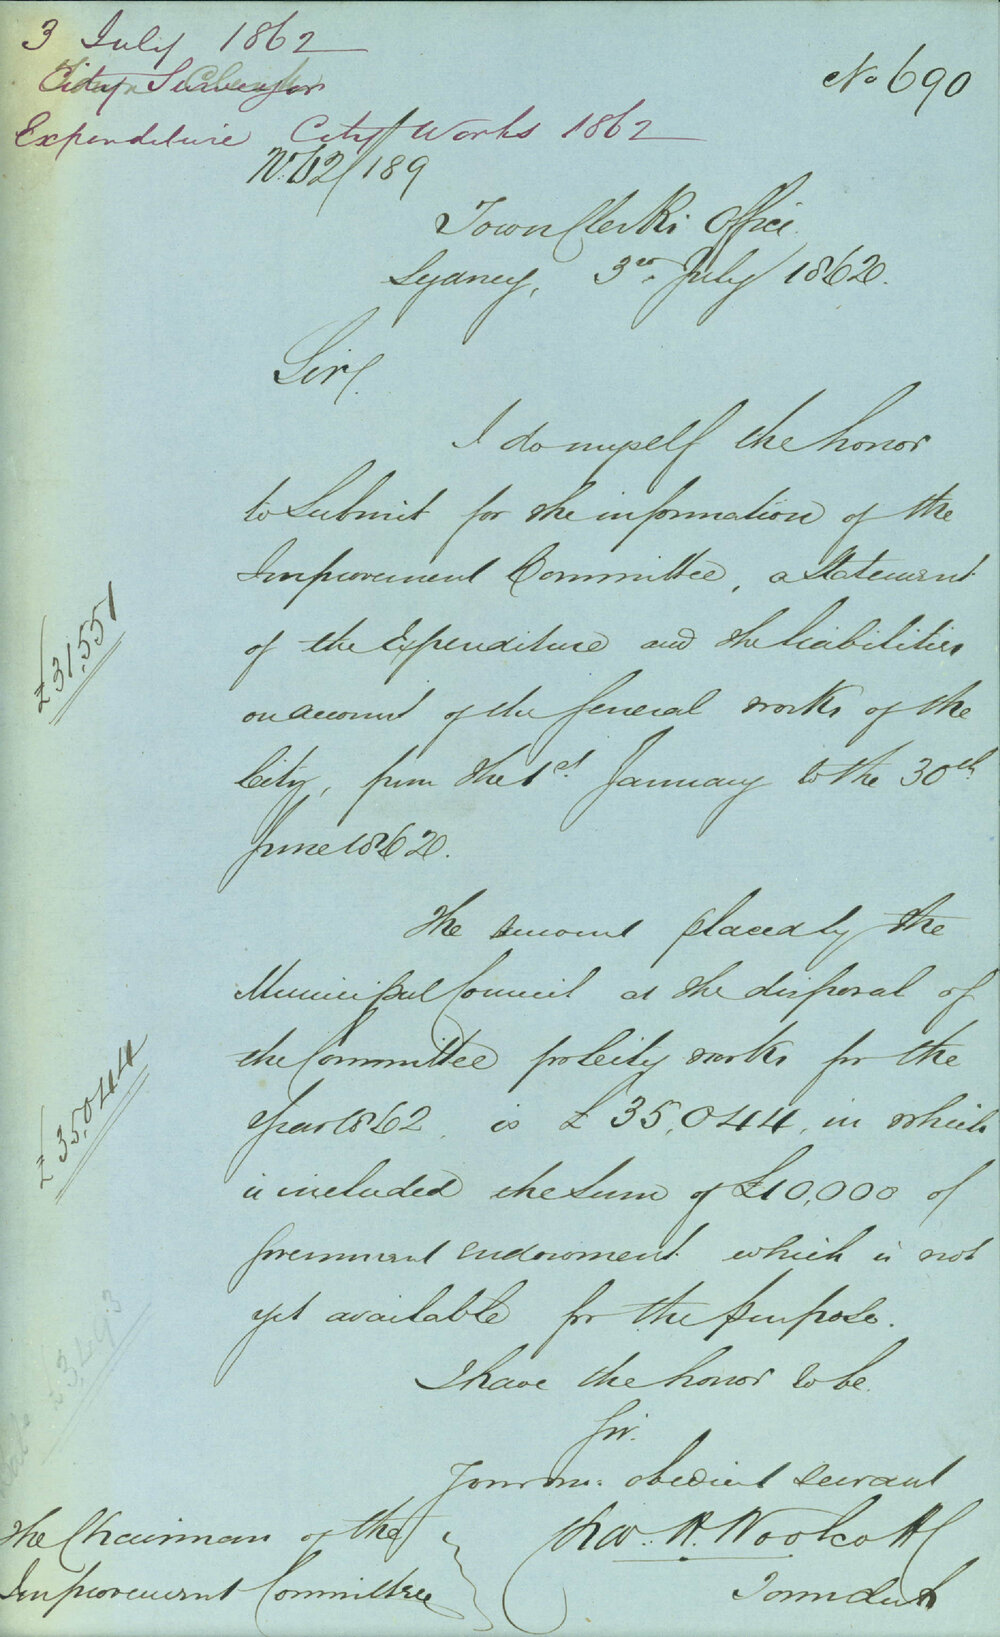 3 July 1862
No 690
City
Expenditure City Works 1862
189
Town Clerk's Office
Sydney, 3rd July 1862.
Sir,
I do myself the honor
to Submit for the information of the
Improvement Committee, a Statement
of the Expenditure and the liabilities
on account of the general works of the
City, from the 1st January to the 30th
June 1862.
£31,551
The amount placed by the
Municipal Council at the disposal of
the Committee for City works for the
Year 1862, is £35,044, in which
is included the Sum of £10,000 of
Government endowment which is not
yet available for the purpose.
£35,044
3,493
I have the honor to be
Sir.
Your obedient servant
Chas. H. Woolcott
Town Clerk
The Chairman of the
Improvement Committee